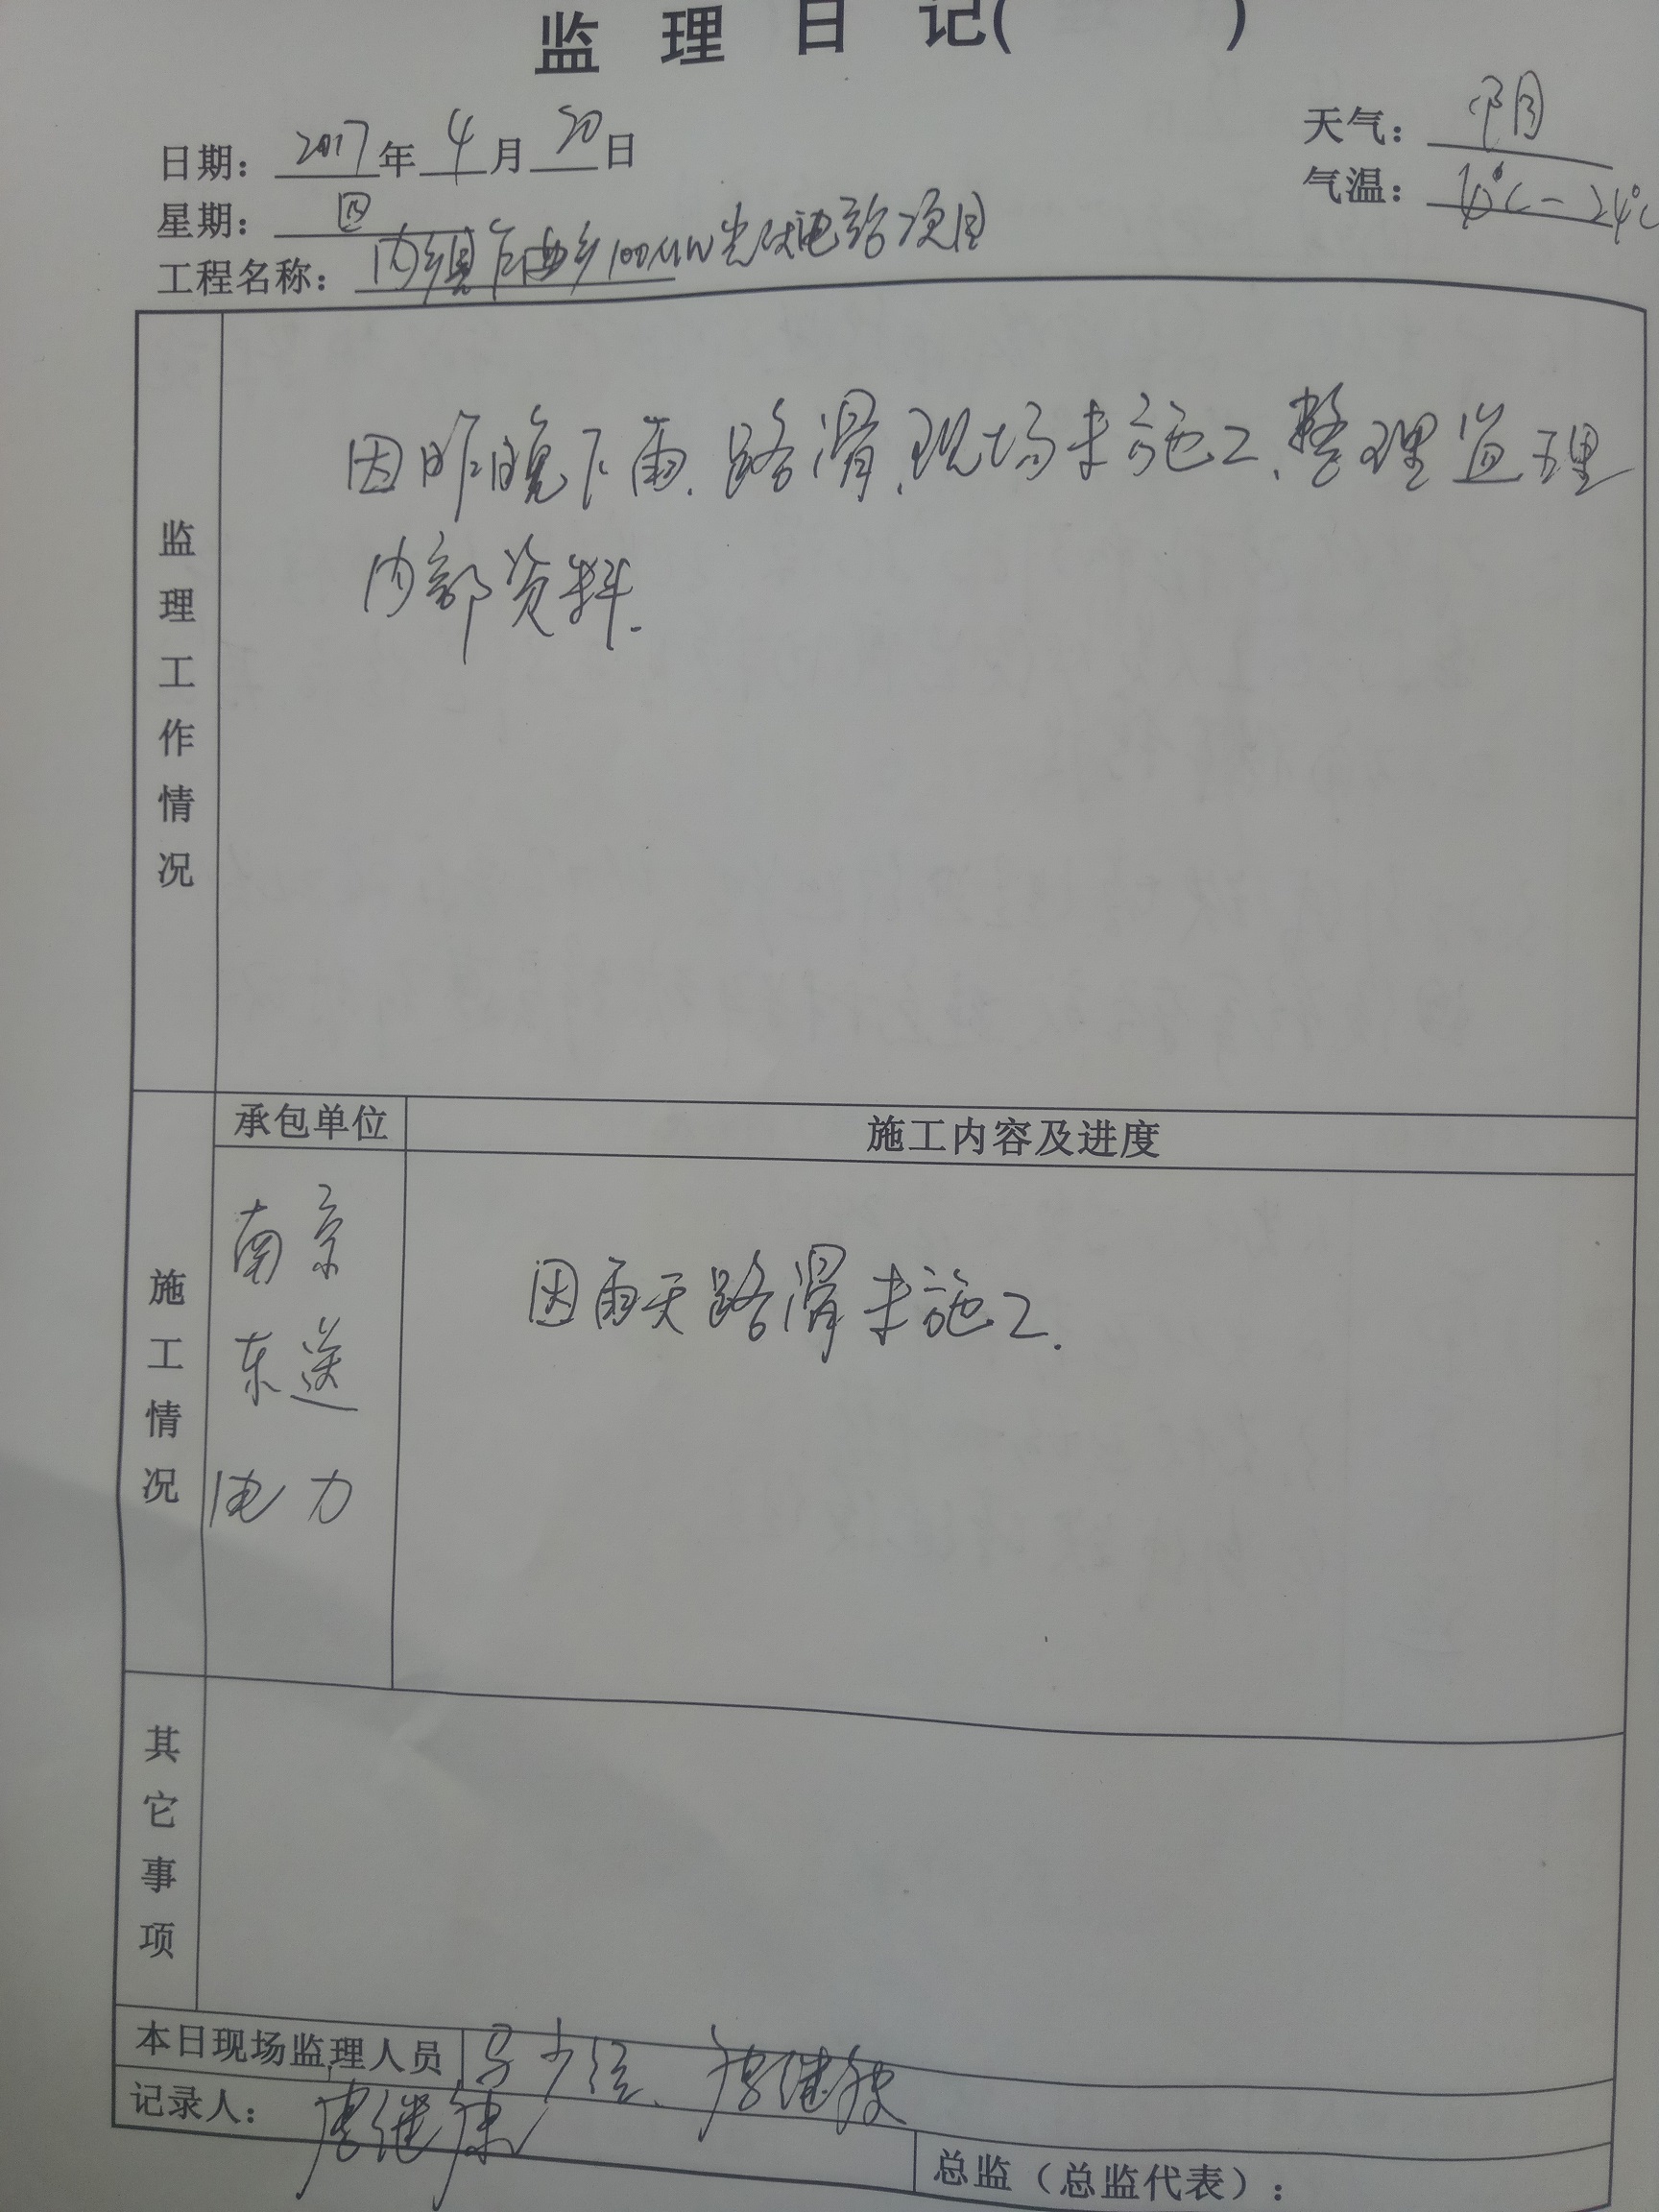 监理日记( )
日期: 2017年4月20日
天气: 阴
星期: 四
气温: 10℃-24℃
工程名称: 内乡县乍曲乡100MW光伏电站项目
监理工作情况
因昨晚下雨.路滑.现场未施工.整理监理
内部资料.
施工情况
承包单位
施工内容及进度
南京
东送
电力
因雨天路滑未施工.
其它事项
本日现场监理人员
记录人:
总监(总监代表):